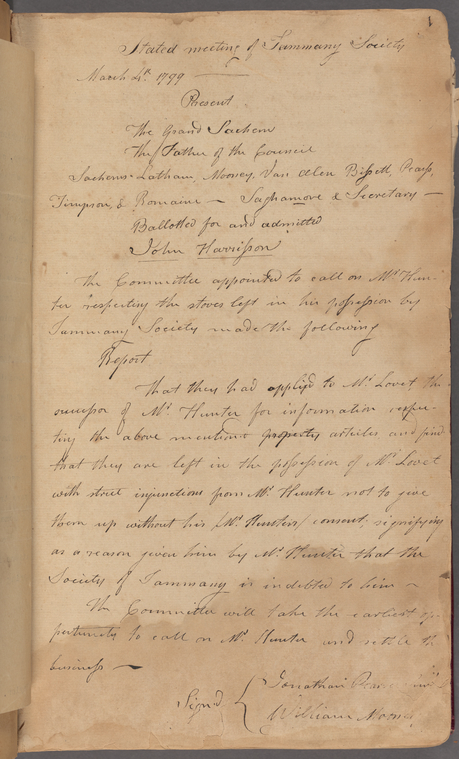 1
Stated meeting of Tammany Society
March 4th 1799
Present
The Grand Sachem
The Father of the Council
Sachems Latham, Mooney, Van Alen Bissett, Pearss,
Timpson, & Romaine – Saghamore & Secretary –
Ballotted for and admitted
John Harrisson
The Committee appointed to call on Mr Hun-
ter respecting the stoves left in his possession by
Tammany Society made the following
Report
That they had applied to Mr Lovet the
successor of Mr Hunter for information respec-
ting the above mentiond articles and find
that they are left in the possession of Mr Lovet
with strict injunctions from Mr Hunter not to give
them up without his (Mr Hunters) consent, signifying
as a reason given him by Mr Hunter that the
Society of Tammany is indebted to him –
The Committee will take the earliest op-
pertunity to call on Mr Hunter and settle the
business –
Signd { Jonathan
William Mooney